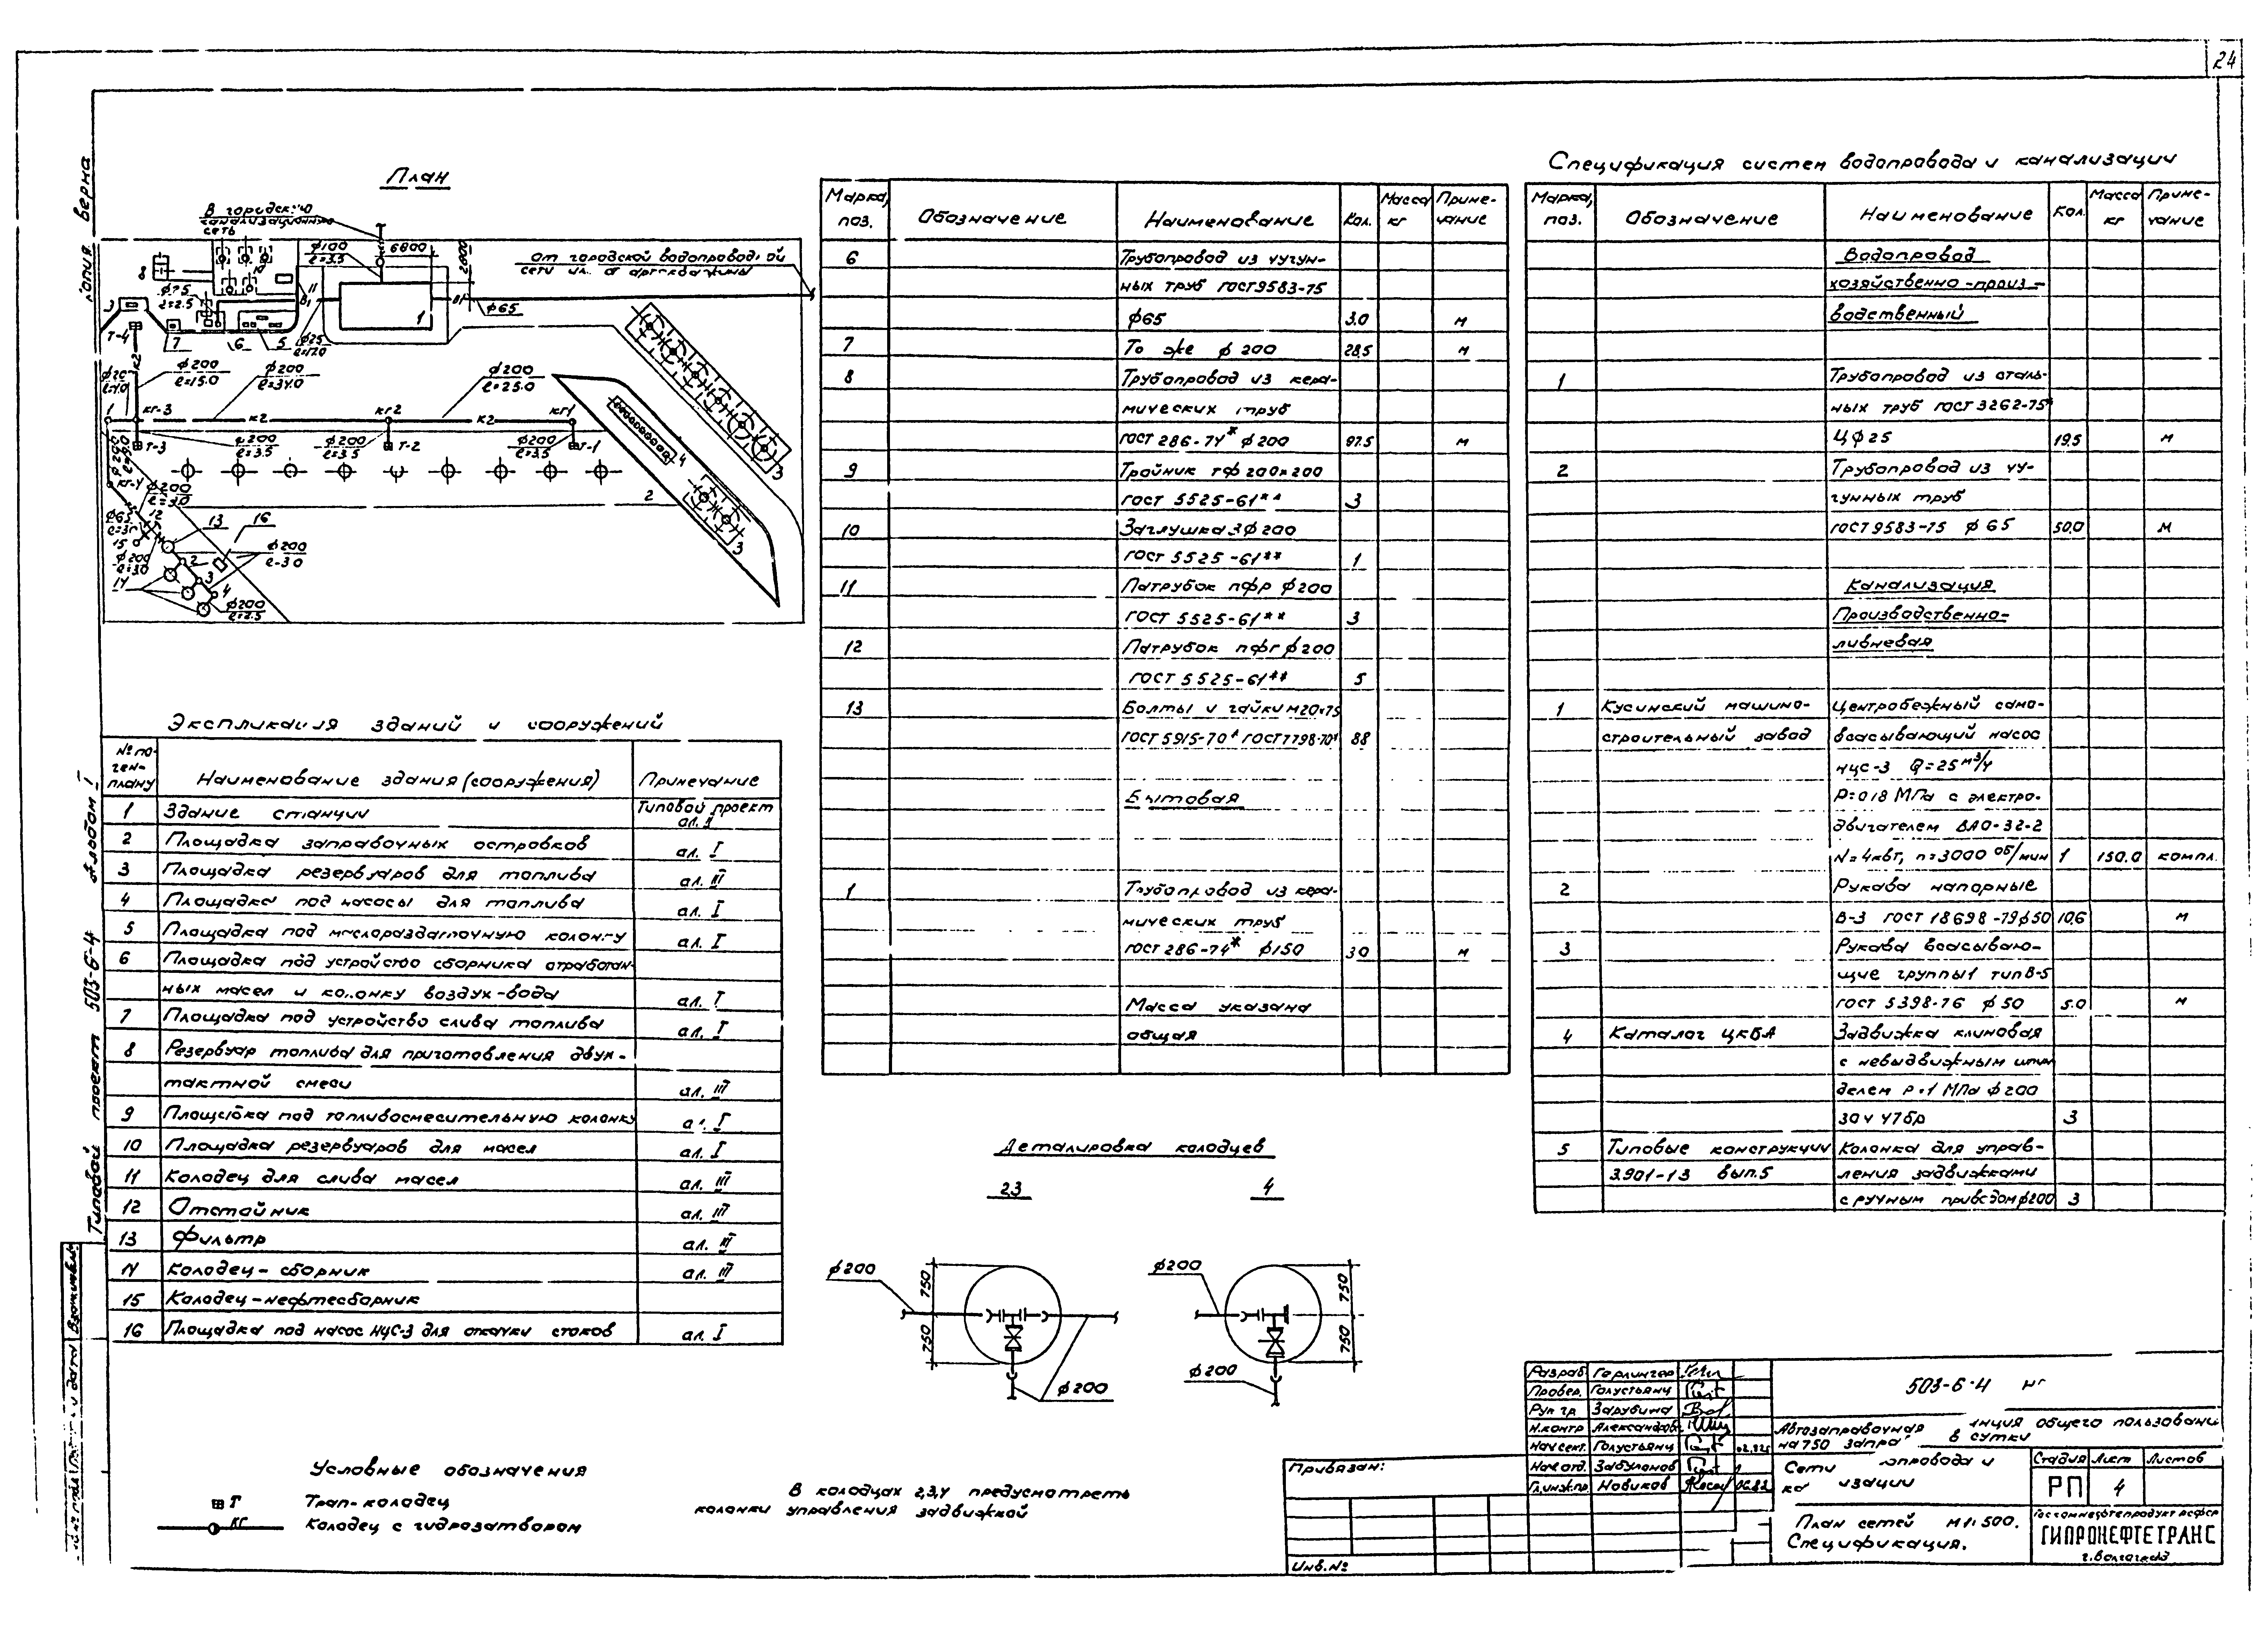 24
Копия верна
Типовой проект 503-6-4 Альбом I
План
В городскую
канализационную
сеть
от городской водопроводной
сети ил. от артскважины
ф100
ℓ=3.5
6800
2000
ф65
8
ф75
ℓ=2.5
10
11
В1
В1
1
Т-4
7
6
5
ф25
ℓ=12.0
К2
ф200
ℓ=15.0
ф200
ℓ=34.0
ф200
ℓ=25.0
1
КГ-3
К2
КГ2
К2
КГ1
Т-3
ф200
ℓ=3.5
ф200
ℓ=3.5
Т-2
ф200
ℓ=3.5
Т-1
4
3
КГ-4
ф200
2
3
ф65
12
13
16
15
ф200
ℓ=3.0
ф200
ℓ=3.0
14
2
3
4
ф200
ℓ=2.5
Экспликация зданий и сооружений
№ по генплану
Наименование здания (сооружения)
Примечание
1 Здание станции Типовой проект
ал. I
2 Площадка заправочных островков ал. I
3 Площадка резервуаров для топлива ал. III
4 Площадка под насосы для топлива ал. I
5 Площадка под маслораздаточную колонку ал. I
6 Площадка под устройство сборника отработан-
ных масел и колонку воздух-вода ал. I
7 Площадка под устройство слива топлива ал. I
8 Резервуар топлива для приготовления двух-
тактной смеси ал. III
9 Площадка под топливосмесительную колонку ал. I
10 Площадка резервуаров для масел ал. I
11 Колодец для слива масел ал. III
12 Отстойник ал. III
13 Фильтр ал. III
14 Колодец-сборник ал. III
15 Колодец-нефтесборник
16 Площадка под насос НЦС-3 для откачки стоков ал. I
Условные обозначения
Т Трап-колодец
КГ Колодец с гидрозатвором
Марка, поз. Обозначение Наименование Кол. Масса кг Примечание
6 Трубопровод из чугун-
ных труб ГОСТ 9583-75
ф65 3.0 м
7 То же ф 200 28.5 м
8 Трубопровод из кера-
мических труб
ГОСТ 286-74* ф 200 97.5 м
9 Тройник ТФ 200×200
ГОСТ 5525-61** 3
10 Заглушка ЗФ 200
ГОСТ 5525-61** 1
11 Патрубок ПФР ф200
ГОСТ 5525-61** 3
12 Патрубок ПФГ ф200
ГОСТ 5525-61** 5
13 Болты и гайки М20×75
ГОСТ 5915-70* ГОСТ 7798-70* 88
Бытовая
1 Трубопровод из кера-
мических труб
ГОСТ 286-74* ф150 3.0 м
Масса указана
общая
Деталировка колодцев
2,3
4
ф200
750
750
ф200
ф200
750
750
ф200
В колодцах 2,3,4 предусмотреть
колонки управления задвижкой
Спецификация систем водопровода и канализации
Марка, поз. Обозначение Наименование Кол. Масса кг Примечание
Водопровод
хозяйственно-произ-
водственный
1 Трубопровод из сталь-
ных труб ГОСТ 3262-75*
Ц ф 25 19.5 м
2 Трубопровод из чу-
гунных труб
ГОСТ 9583-75 ф 65 50.0 м
Канализация
Производственно-
ливневая
1 Кусинский машино- Центробежный само-
строительный завод всасывающий насос
НЦС-3 Q=25 м³/ч
Р=0.18 МПа с электро-
двигателем ВАО-32-2
N=4кВт, n=3000 об/мин 1 150.0 компл.
2 Рукава напорные
В-3 ГОСТ 18698-79 ф50 10.6 м
3 Рукава всасываю-
щие группы 1 тип В-5
ГОСТ 5398-76 ф 50 5.0 м
4 Каталог ЦКБА Задвижка клиновая
с невыдвижным шпин
делем Р=1 МПа ф 200
30ч 47бр 3
5 Типовые конструкции Колонка для управ-
3.901-13 вып.5 ления задвижками
с ручным приводом ф200 3
Разраб. Герлингер
Провер. Голустьянц
Рук гр Зарубина
Н.контр Александров
Нач.сект. Голустьянц
Нач.отд. Забулонов
Гл.инж.пр Новиков 06.82
Привязан:
Инв.№
503-6-4 НГ
Автозаправочная станция общего пользования
на 750 заправок в сутки
Сети водопровода и
канализации
План сетей М 1:500.
Спецификация.
Стадия Лист Листов
РП 4
Госкомнефтепродукт РСФСР
ГИПРОНЕФТЕТРАНС
г. Волгоград